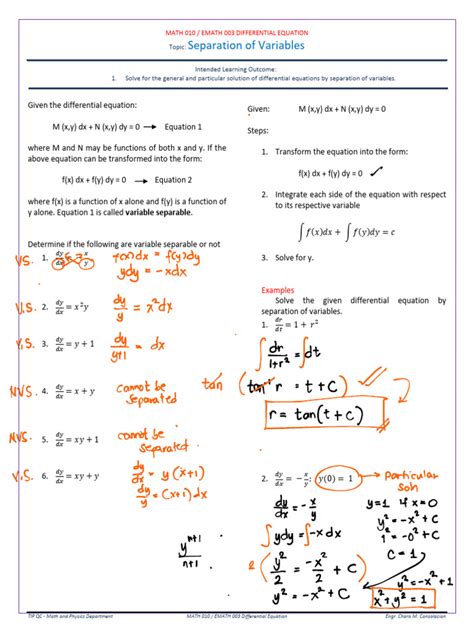 MATH 010 / EMATH 003 DIFFERENTIAL EQUATION
Topic: Separation of Variables
Intended Learning Outcome:
1. Solve for the general and particular solution of differential equations by separation of variables.
Given the differential equation:
M (x,y) dx + N (x,y) dy = 0 → Equation 1
where M and N may be functions of both x and y. If the
above equation can be transformed into the form:
f(x) dx + f(y) dy = 0 → Equation 2
where f(x) is a function of x alone and f(y) is a function of
y alone. Equation 1 is called variable separable.
Determine if the following are variable separable or not
VS. 1. dy/dx = x/y f(x)dx = f(y)dy
ydy = -xdx
V.S. 2. dy/dx = x²y dy/y = x²dx
V.S. 3. dy/dx = y + 1 dy/y+1 = dx
NVS. 4. dy/dx = x + y cannot be
separated
NVS. 5. dy/dx = xy + 1 cannot be
separated
V.S. 6. dy/dx = xy + y dy/dx = y (x+1)
dy/y = (x+1)dx
yⁿ⁺¹/n+1
Given: M (x,y) dx + N (x,y) dy = 0
Steps:
1. Transform the equation into the form:
f(x) dx + f(y) dy = 0 ✓
2. Integrate each side of the equation with respect
to its respective variable
∫ f(x)dx + ∫ f(y)dy = c
3. Solve for y.
Examples
Solve the given differential equation by
separation of variables.
1. dr/dt = 1 + r²
∫ dr/1+r² = ∫dt
tan (tan⁻¹ r = t + C) ✓
r = tan(t + C)
2. dy/dx = -x/y; y(0) = 1 → Particular
soln
dy/dx = -x/y
∫ydy = ∫-xdx
2(y²/2 = -x²/2 + C)
y=1 if x=0
y² = -x² + C
1² = -0² + C
C = 1
y² = -x² + 1
x² + y² = 1
TIP QC - Math and Physics Department MATH 010 / EMATH 003 Differential Equation Engr. Charis M. Consolacion